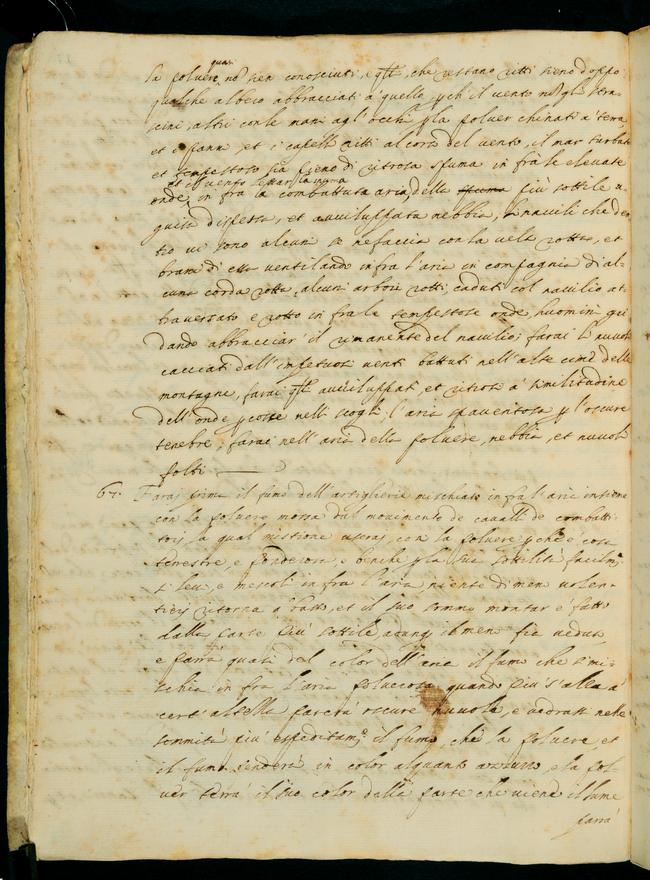 quasi
la polvere, no' sien conosciuti, e q'lli, che restano ritti sieno doppo
qualche albero abbracciati a' quello p'ch' il vento no' gli stra-
scini, altri con le mani agl' occhi p' la polver chinati a' terra
et i panni et i capelli ritti al corso del vento, il mar turbato
et tempestoso sia pieno di ritrosa spuma in fra le elevate
et il vento levar la
onde, in fra la combattuta aria, della spuma più sottile a
guisa di spessa, et avviluppata nebbia, li navili che den-
tro vi sono alcuni se ne faccia con la vela rotta, et
brani di essa ventilando infra l'aria in compagnia d'al-
cuna corda rotta, alcuni arbori rotti, caduti col navilio at-
traversato e rotto in fra le tempestose onde, huomini gri-
dando abbracciar' il rimanente del navilio; farai li nuvoli
cacciati dall'impetuosi venti battuti nell'alte cime delle
montagne, farai q'lli avviluppati, et ritrosi a' similitudine
dell'onde p'cosse nelli scogli: l'aria spaventosa p' l'oscure
tenebre, farai nell'aria della polvere, nebbia, et nuvoli
folti
67. Farai prima il fumo dell'artiglierie mischiato infra l'aria insieme
con la polvere mossa dal movimento de cavalli de combatti-
tori, la qual mistione userai, con la polvere p'che è cosa
terrestre, e ponderosa, e benche p' la sua sottilità facilm.
si leva, e mescoli infra l'aria niente di men volen-
tieri ritorna a' basso, et il suo sommo montar è fatto
dalla parte più sottile, adunq' il meno fia veduto
e parrà quasi del color dell'aria il fumo che si mi-
schia in fra l'aria polverosa quando più s'alza a'
cert' altezza parerà oscure nuvole, e vedrassi nelle
sommità più espeditam. il fumo, che la polvere, et
il fumo penderà in color alquanto azzurro, e la pol-
ver terrà il suo color dalla parte che viene il lume
parrà